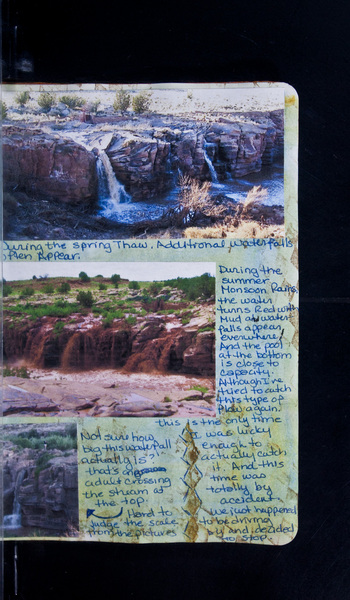 During the spring Thaw, Additional waterfalls
often Appear.
During the
summer
Monsoon Rains
the water
turns Red with
Mud and water
falls appear
everywhere,
And the pool
at the bottom
is close to
capacity.
Although I've
tried to catch
this type of
flow again.
this is the only time
I was lucky
enough to
actually catch
it. And this
time was
totally by
accident
we just happened
to be driving
by and decided
to stop.
Not sure how
big this waterfall
actually is?!
that's an
adult crossing
the stream at
the top.
Hard to
judge the scale
from the pictures